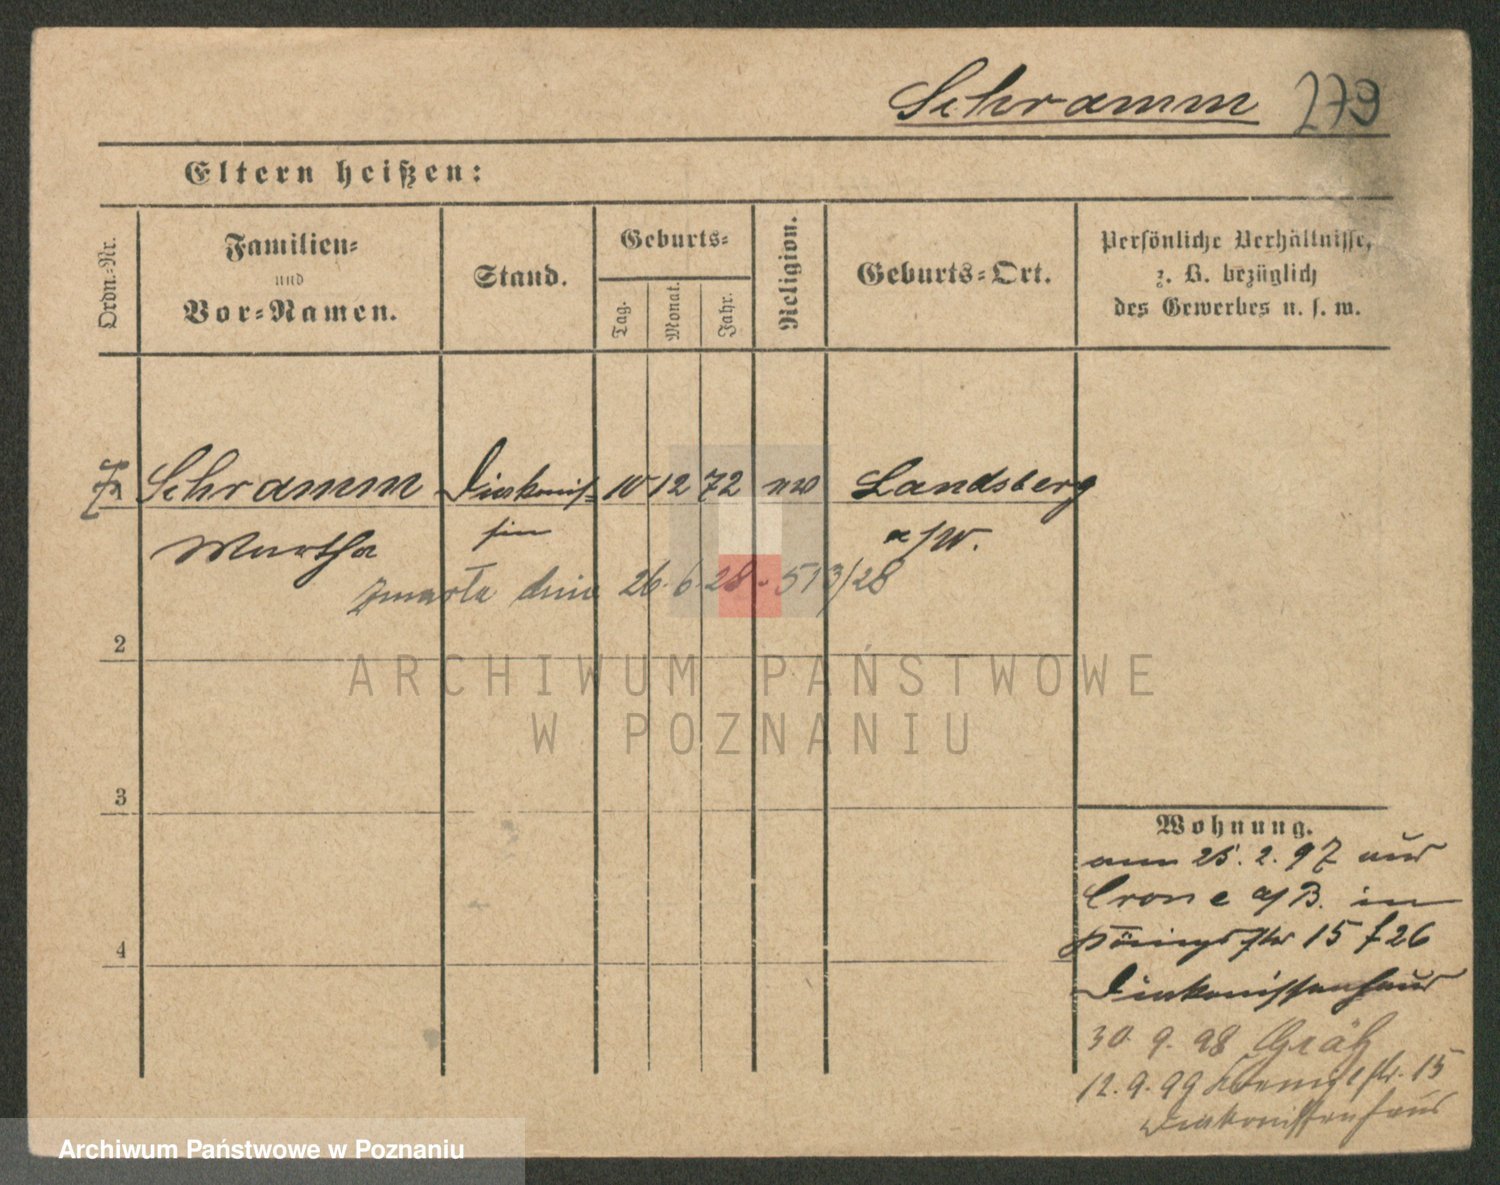 Schramm 279
Eltern heißen:
Ordn.-Nr.
Familien-
und
Vor-Namen.
Stand.
Geburts-
Tag.
Monat.
Jahr.
Religion.
Geburts-Ort.
Persönliche Verhältnisse,
z. B. bezüglich
des Gewerbes u. s. w.
Schramm Diakonis- 10 12 72 Landsberg
Martha sin a/W.
zmarła dnia 26.6.28 - 513/28
2
3
4
Wohnung.
am 25.2.97 aus
Crone a/B. in
Königsstr 15 f 26
Diakonissenhaus
30.9.98 Grätz
12.9.99 Koenigstr. 15
Diakonissenhaus
ARCHIWUM PAŃSTWOWE
W POZNANIU
Archiwum Państwowe w Poznaniu